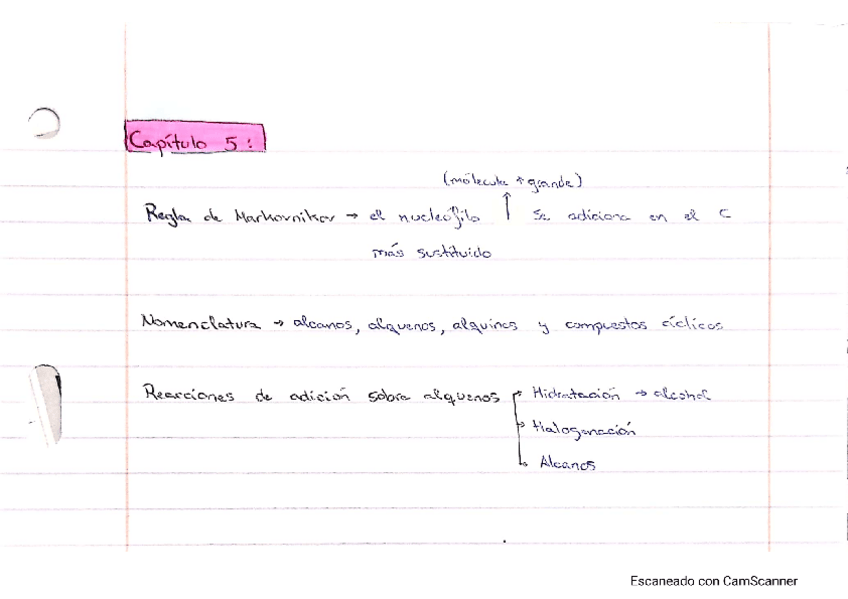 Capítulo 5:
(molécula + grande)
Regla de Markovnikov → el nucleófilo ↑ se adiciona en el C
más sustituido
Nomenclatura → alcanos, alquenos, alquinos y compuestos cíclicos
Reacciones de adición sobre alquenos → Hidratación → alcohol
→ Halogenación
→ Alcanos
Escaneado con CamScanner